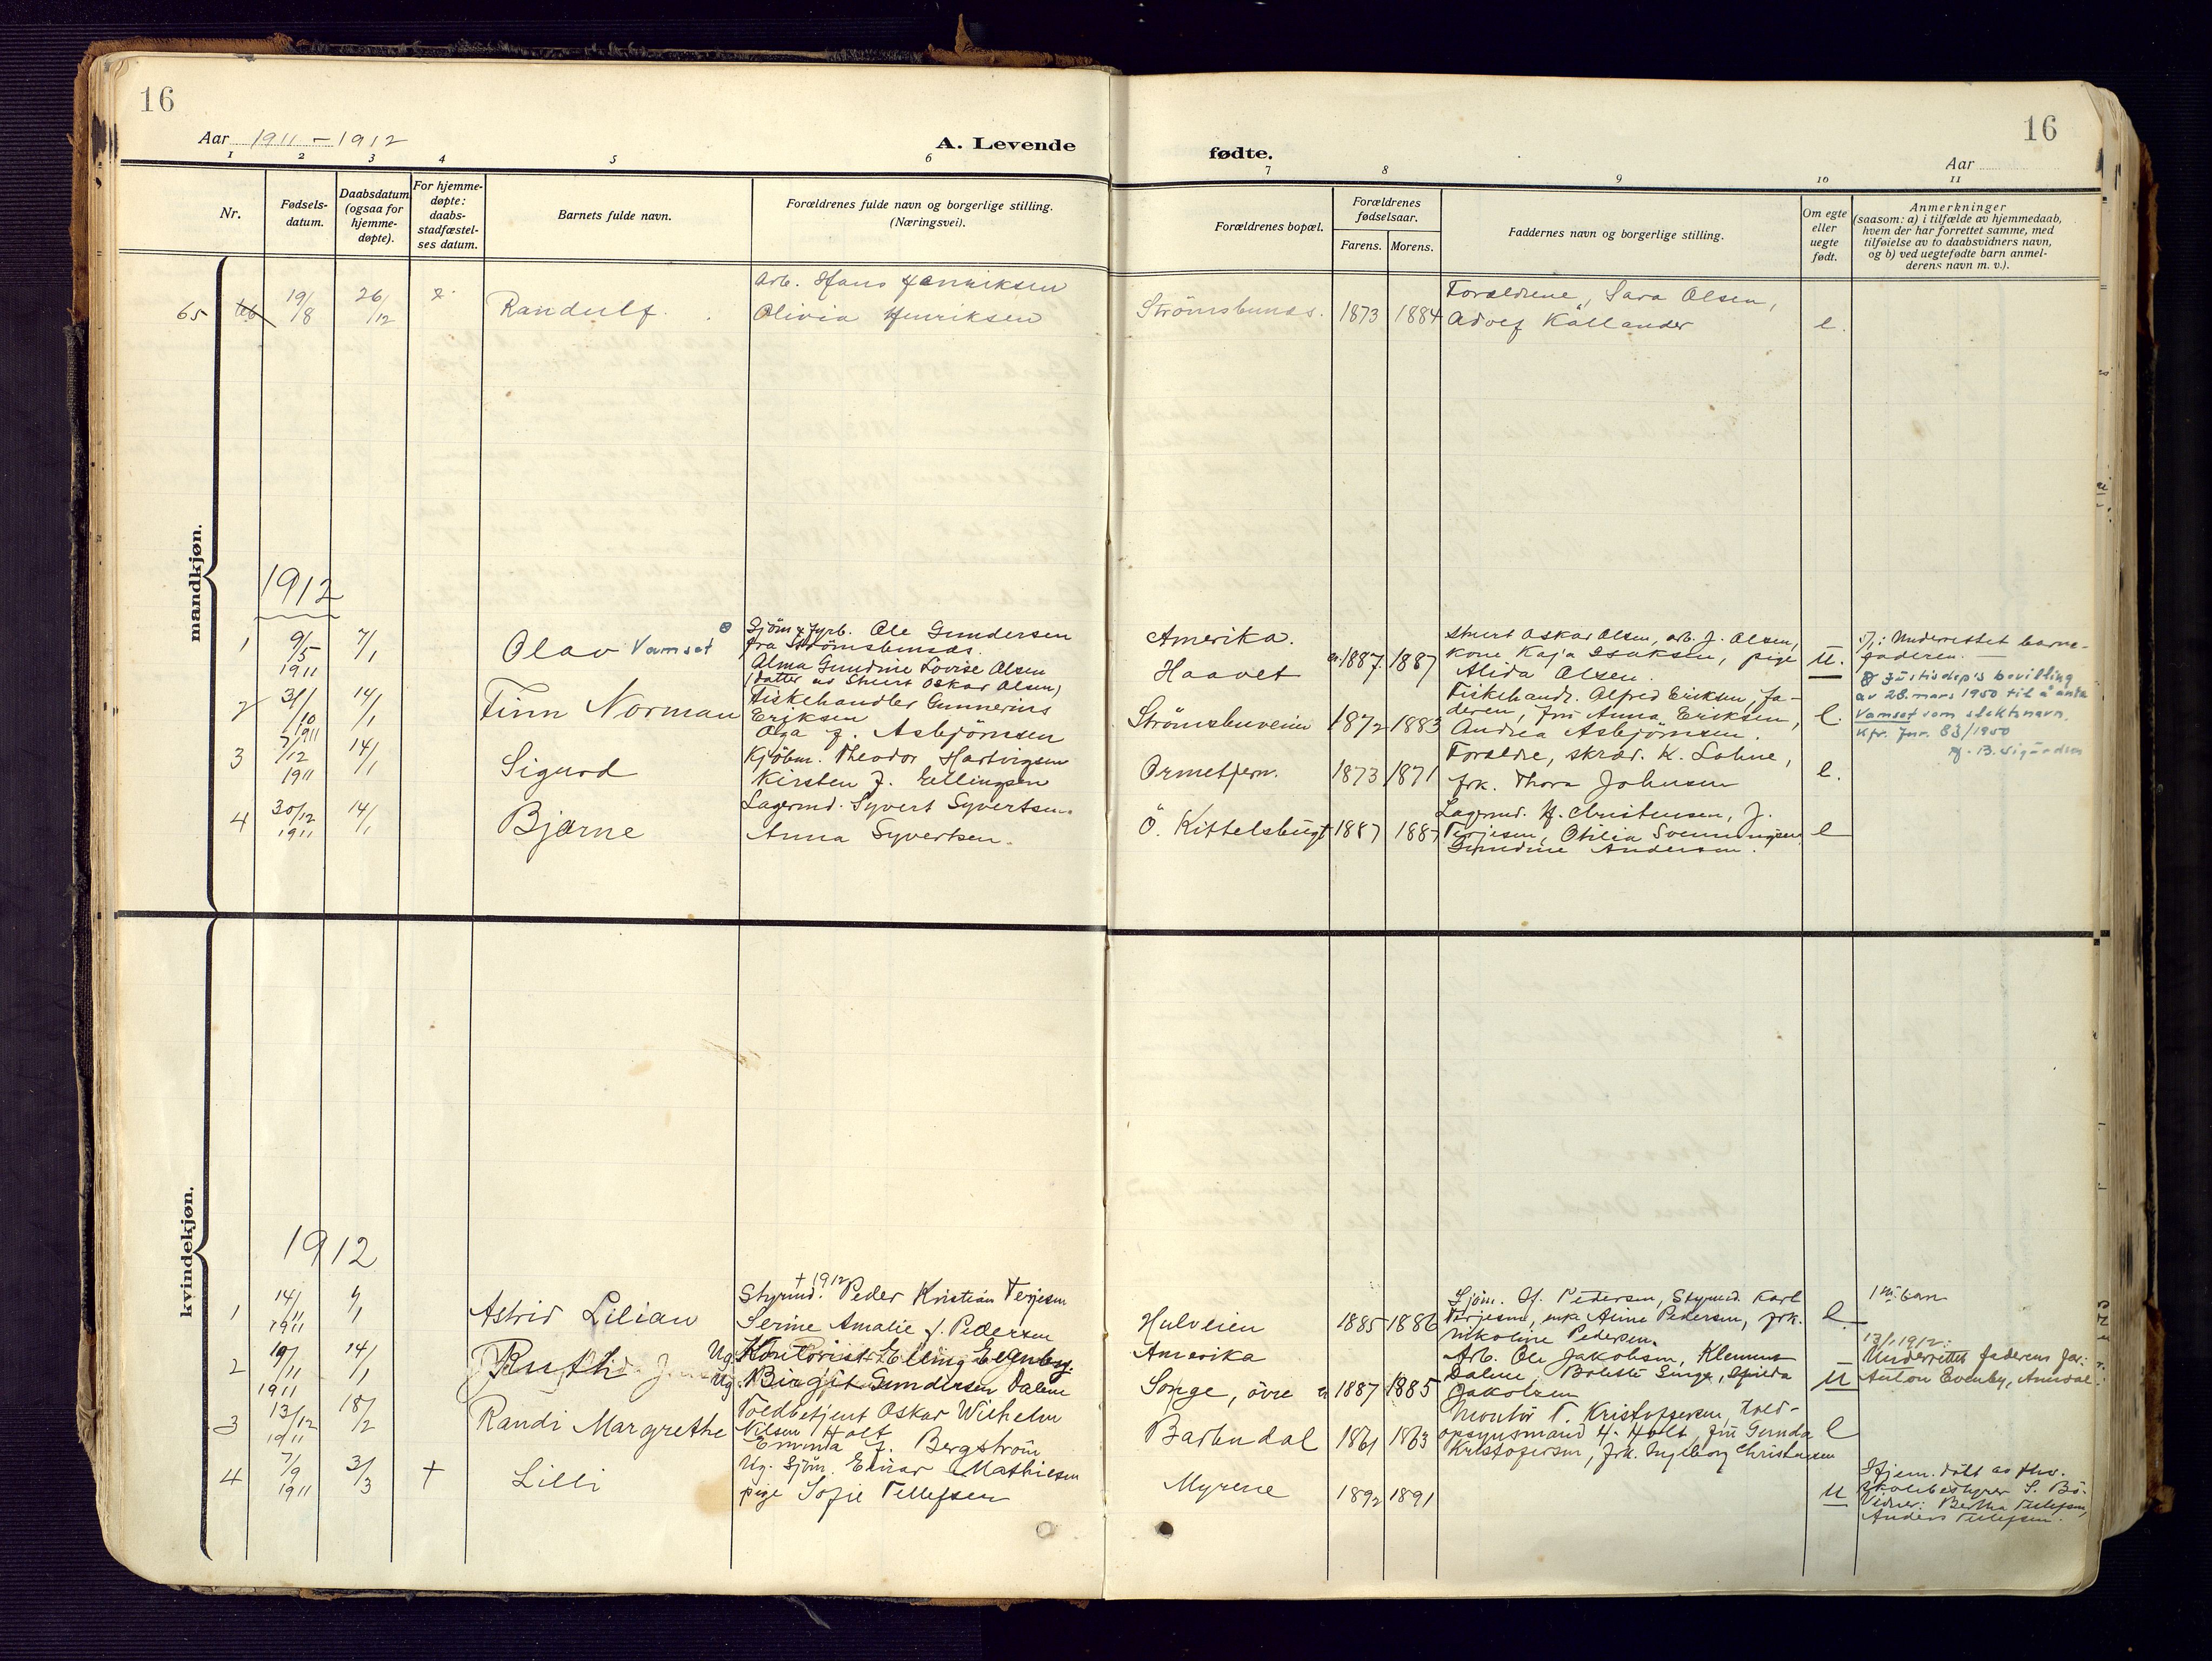 16
16
Aar 1911 - 1912
A. Levende
fødte.
Aar
1 2 3 4 5 6 7 8 9 10 11
Nr.
Fødsels-
datum.
Daabsdatum
(ogsaa for
hjemme-
døpte).
For hjemme-
døpte:
daabs-
stadfæstel-
ses datum.
Barnets fulde navn.
Forældrenes fulde navn og borgerlige stilling.
(Næringsvei).
Forældrenes bopæl.
Forældrenes
fødselsaar.
Farens. Morens.
Faddernes navn og borgerlige stilling.
Om egte
eller
uegte
født.
Anmerkninger
(saasom: a) i tilfælde av hjemmedaab,
hvem der har forrettet samme, med
tilføielse av to daabsvidners navn,
og b) ved uegtefødte barn anmel-
derens navn m. v.).
mandkjøn.
65 19/8 26/12 Randulf.
Arb. Hans Henriksen
Olivia Henriksen
Strömsbunds. 1873 1884
Forældrene, Sara Olsen,
Adolf Källander
e.
1912
1 9/5 1911 7/1 Olav Vamset
Sjöm & fyrb. Ole Gundersen
fra Strömsbunds.
Alma Gundine Lovise Olsen
(datter av Stuert Oskar Olsen)
Amerika.
Haavet
1887 1887
Stuert Oskar Olsen, arb. J. Olsen,
kone Kaja Isaksen, pige
Alida Olsen.
u.
Underrettet barne-
faderen.
Justisdep's bevilling
av 28. mars 1950 til å anta
Vamset som slektsnavn.
Kfr. Jnr. 83/1950
2 31/10 1911 14/1 Finn Norman
Fiskehandler Gunnerius
Eriksen
Olga f. Asbjörnsen
Strömsbuveien 1872 1883
Fiskehandl. Alfred Eriksen, fa-
deren, fru Anna Eriksen,
Andrea Asbjörnsen.
e.
3 7/12 1911 14/1 Sigurd
Kjöbm. Theodor Hartvigsen
Kirsten f. Ellingsen
Ormetjern. 1873 1871
Foreldre, skræd. K. Lohne,
frk. Thora Johnsen
e.
4 30/12 1911 14/1 Bjarne
Lagermd. Syvert Syvertsen.
Anna Syvertsen.
Ö. Kittelsbugt 1887 1887
Lagermd. H. Christensen, J.
Terjesen, Otilia Svenningsen,
Gundine Andersen.
e
kvindekjøn.
1912
1 14/11 1911 Astrid Lilian
† 1912
Styrmd. Peder Kristian Terjesen
Serine Amalie f. Pedersen
Hulveien 1885 1886
Sjöm. Pedersen, Styrmd. Karl
Terjesen, enke Anne Pedersen, frk.
Nikoline Pedersen.
e
1ste barn
2 19/11 1911 14/1 Ruth
Ug. Kontorist Elling Evenby
Ug. Birgit Gundersen Dalene
Amerika
Songe, övre 1887 1885
Arb. Ole Jakobsen, Klemmet
Dalene, Jakobsen
u
13/1 1912:
Underrettet faderens far:
Anton Evenby, Arendal
3 13/12 1911 18/2 Randi Margrethe
Toldbetjent Oskar Wilhelm
Nilsen Holt
Emma f. Bergström
Barbudal 1861 1863
Montör T. Kristofersen, told-
opsynsmand H. Holt, fru Gunda
Kristofersen, frk. Ingeborg Christensen
e
4 7/9 1911 3/3 † Lilli
Ug. Sjöm. Einar Mathiesen
pige Sofie Tellefsen
Myrene 1892 1891
u
Hjem. döbt av fhv.
skolebestyrer S. Bö.
Vidner: Bertha Tellefsen,
Anders Tellefsen.